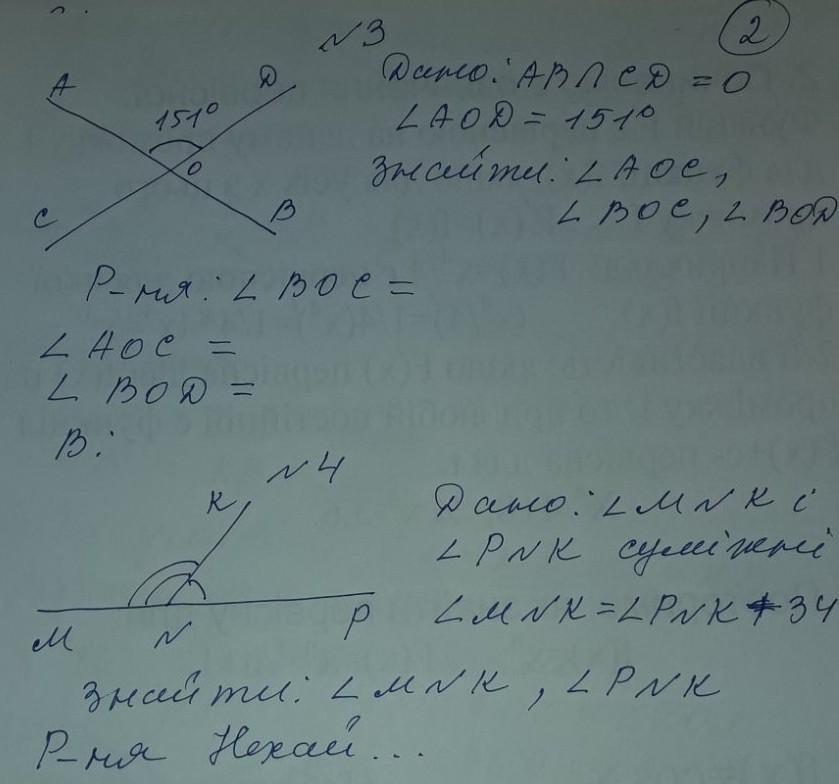 №3
2
A
D
151°
O
C
B
Дано: AB∩CD = O
∠AOD = 151°
Знайти: ∠AOC,
∠BOC, ∠BOD
Р-ня: ∠BOC =
∠AOC =
∠BOD =
В:
№4
K
M
N
P
Дано: ∠MNK і
∠PNK суміжні
∠MNK = ∠PNK + 34
Знайти: ∠MNK, ∠PNK
Р-ня Нехай...